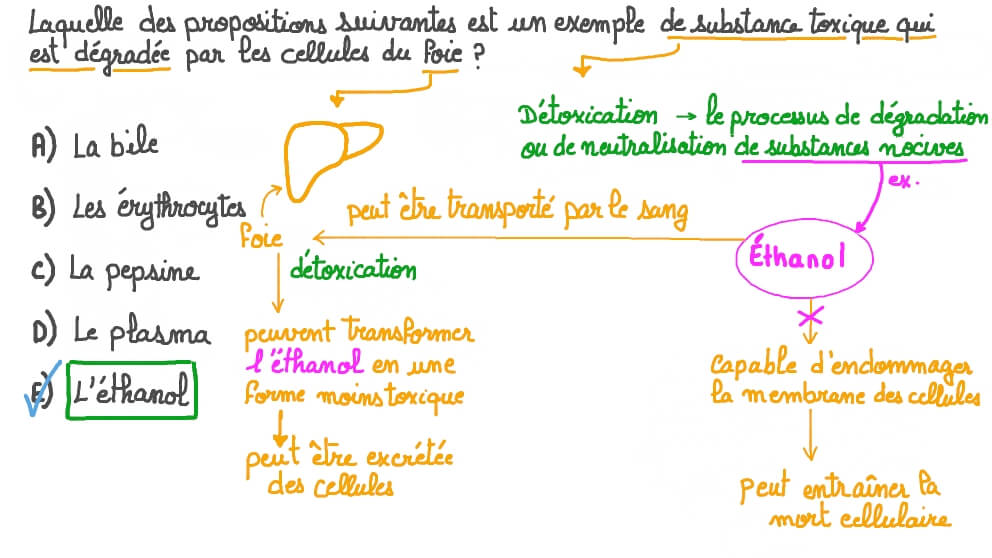 Laquelle des propositions suivantes est un exemple de substance toxique qui
est dégradée par les cellules du foie ?
Détoxication → le processus de dégradation
ou de neutralisation de substances nocives
ex.
A) La bile
B) Les érythrocytes
C) La pepsine
D) Le plasma
E) L'éthanol
foie
peut être transporté par le sang
Éthanol
détoxication
peuvent transformer
l'éthanol en une
forme moins toxique
peut être excrétée
des cellules
capable d'endommager
la membrane des cellules
peut entraîner la
mort cellulaire